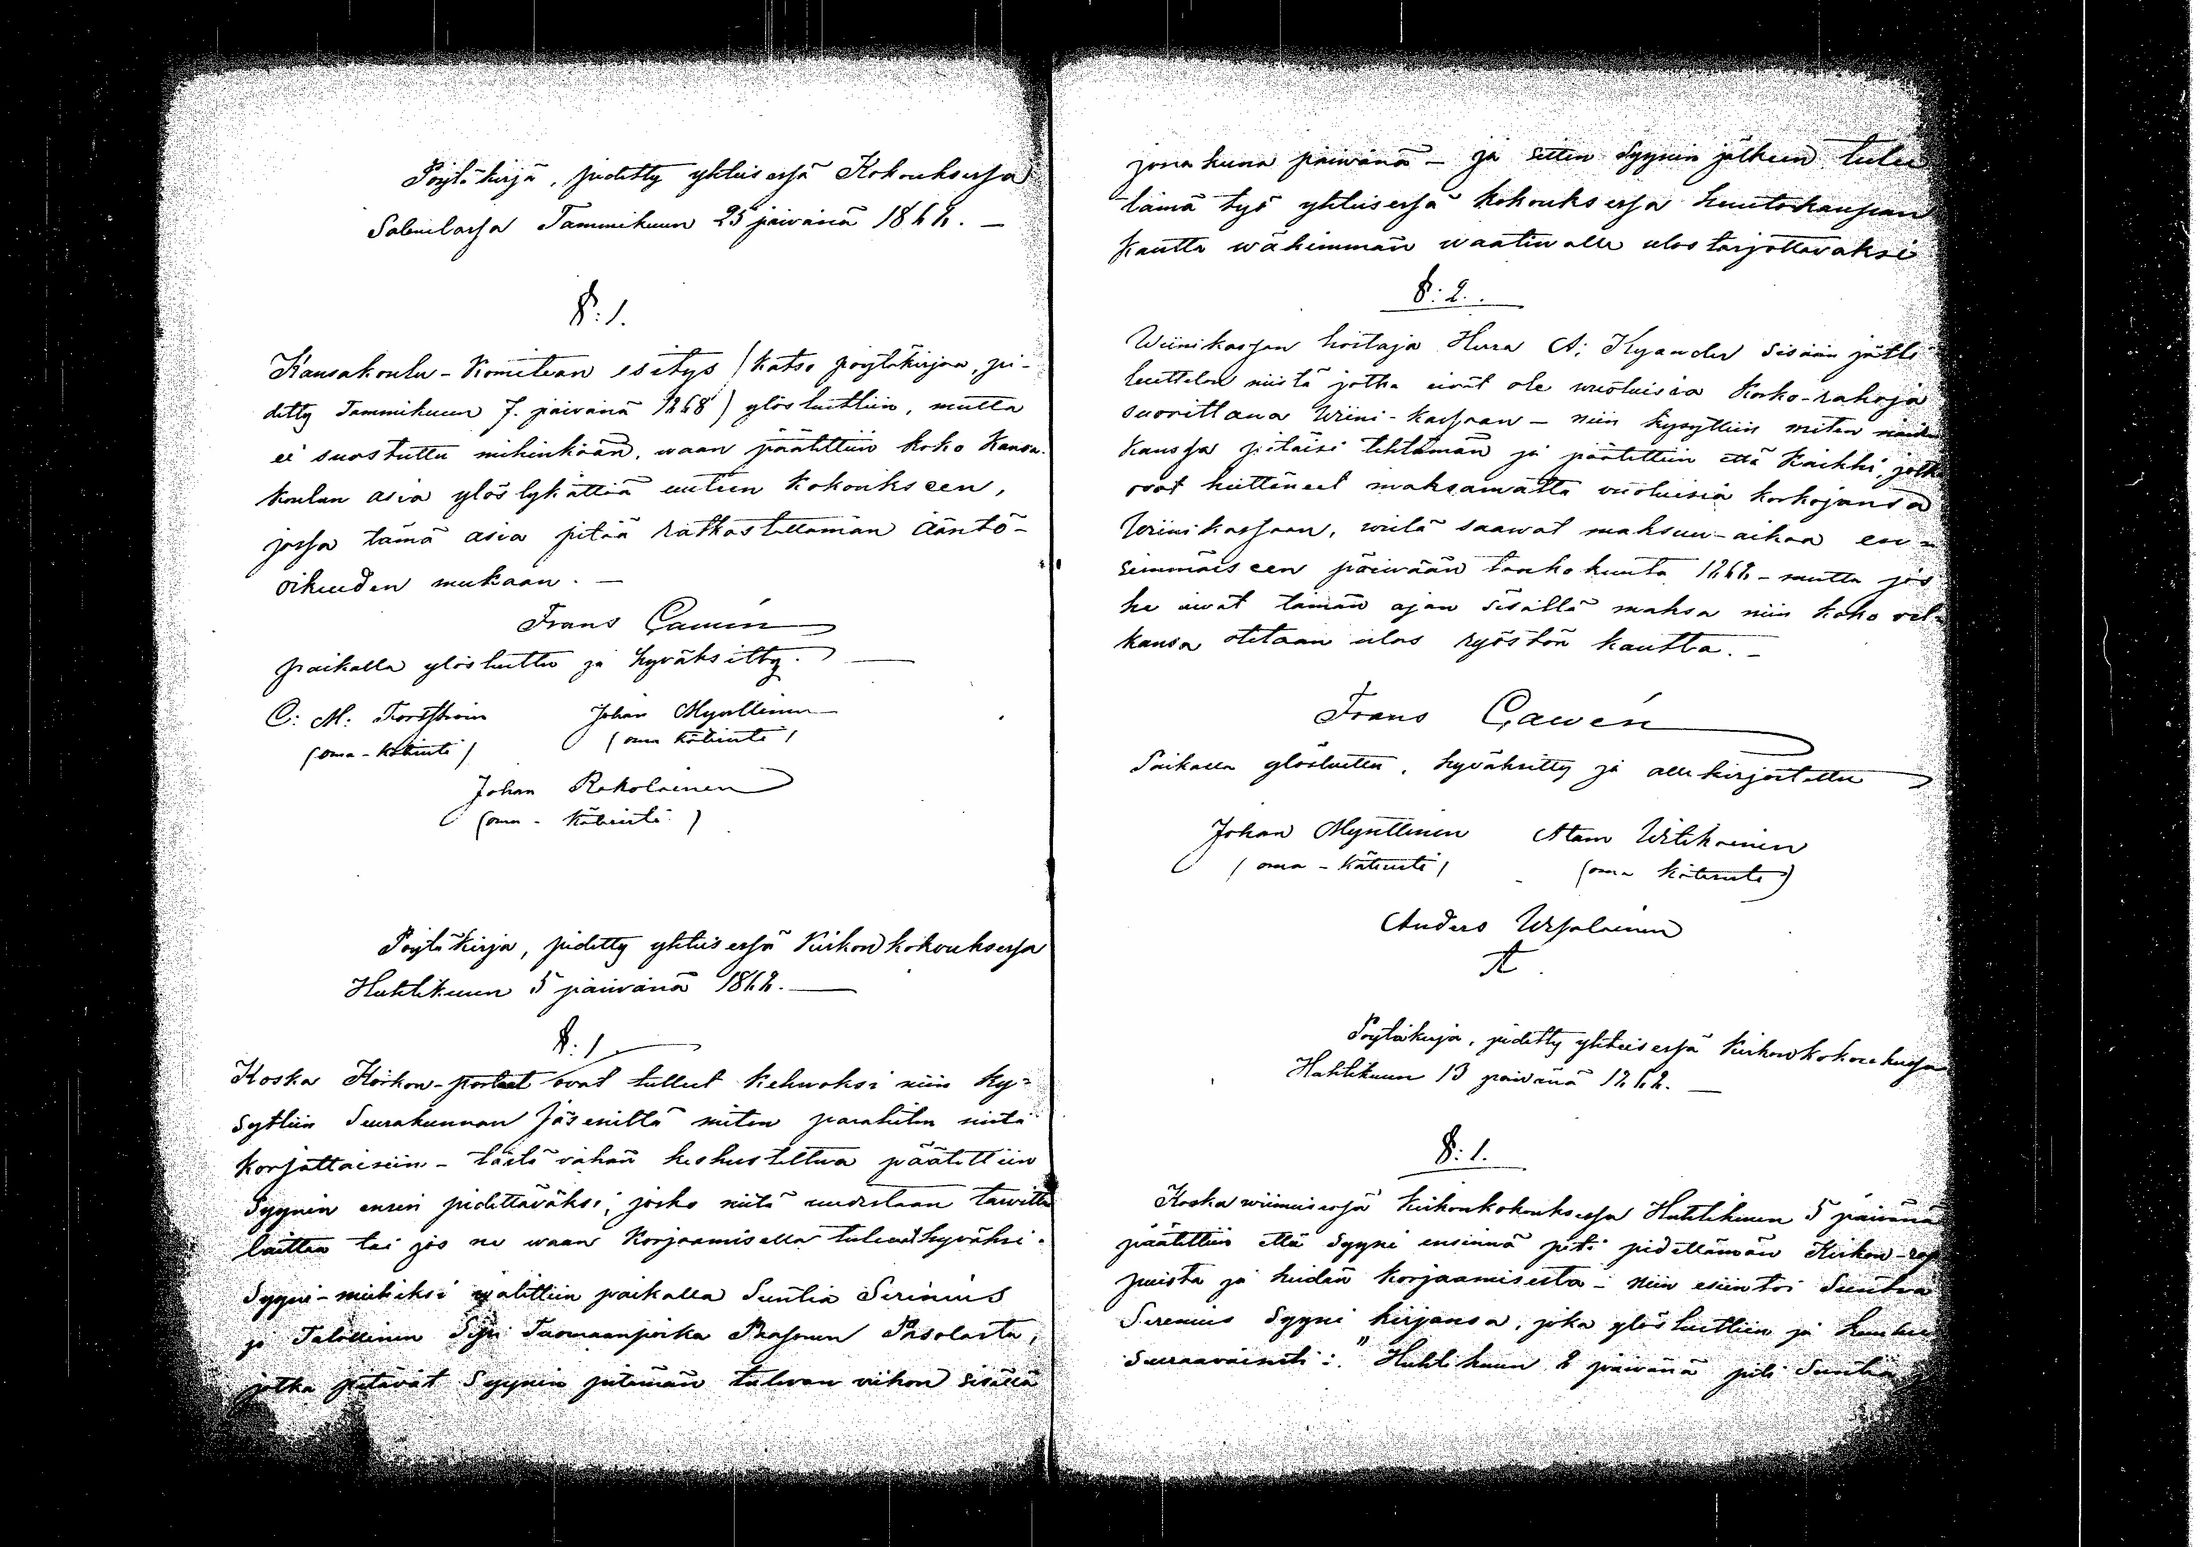 Pöytäkirja, pidetty yhteisessä Kokouksessa
Salmilassa Tammikuun 25 päivänä 1868. —
§: 1.
Kansakoulu-Komitean esitys (katso pöytäkirjaa, pi-
detty Tammikuun 7. päivänä 1868) ylösluettiin, mutta
ei suostuttu mihinkään, waan päätettiin koko Kansa-
koulun asia ylöslykättää uuteen Kokoukseen,
jossa tämä asia pitää ratkastettaman ääntö-
oikeuden mukaan. —
Frans Gawén
paikalla ylösluettu ja hyväksitty. —
C: M: Forsström Johan Mynttinen
(oma-kätisesti) (oma kätisesti)
Johan Rakolainen
(oma-kätisesti)
Pöytäkirja, pidetty yhteisessä Kirkonkokouksessa
Huhtikuun 5 päivänä 1868. —
§: 1.
Koska Kirkon-portaat ovat tulleet kehnoksi niin ky-
syttiin Seurakunnan Jäseniltä miten parahiten niitä
korjattaisiin - tästä vähän keskusteltua päätettiin
Syynin ensin pidettäväksi, josko niitä uudestaan tarvitta
laittaa tai jos ne waan Korjaamisella tulevat hyväksi.
Syyni-miehiksi walittiin paikalla Suntia Serenius
ja Talollinen Tuomaanpoika Paasonen Pasolasta,
jotka pitävät Syynin pitämän tulevan viikon sisällä
jonakuna päivänä - ja sitten Syynin jälkeen tulee
tämä työ yhteisessä kokouksessa huutokaupan
kautta wähimmän waativalle ulostarjottavaksi
§: 2.
Wiinikassan hoitaja Herra A: Kyander sisään jätti
luettelon niistä jotka eivät ole wuotuisia Korko-rahoja
suorittana Wiini-kassaan - niin kysyttiin miten näiden
Kanssa pitäisi tehtämän ja päätettiin että Kaikki jotk
ovat heittäneet maksamatta vuotuisia korkojansa
Wiinikassaan, vielä saawat maksuu-aikaa en-
simmäiseen päivään toukokuuta 1868 - mutta jos
he eivät tämän ajan sisällä maksa niin koko vel-
kansa otetaan ulos ryöstön kautta. -
Frans Gawén
Paikalla ylösluettu, hyväksitty ja allekirjoitettu
Johan Mynttinen Atam Witikainen
(oma-kätisesti) (oma kätisesti)
Anders Ursalainen
Pöytäkirja, pidetty yhteisessä Kirkonkokouksessa
Huhtikuun 13 päivänä 1868. —
§: 1.
Koska wiimeisessä Kirkonkokouksessa Huhtikuun 5 päivänä
päätettiin että Syyni ensinnä piti pidettämän Kirkon-rap
puista ja heidän korjaamisesta - niin esiintoi Suntia
Serenius Syyni kirjansa, joka ylösluettiin ja kuuluu
Seuraavaisesti: "Huhtikuun 8 päivänä piti Suntia